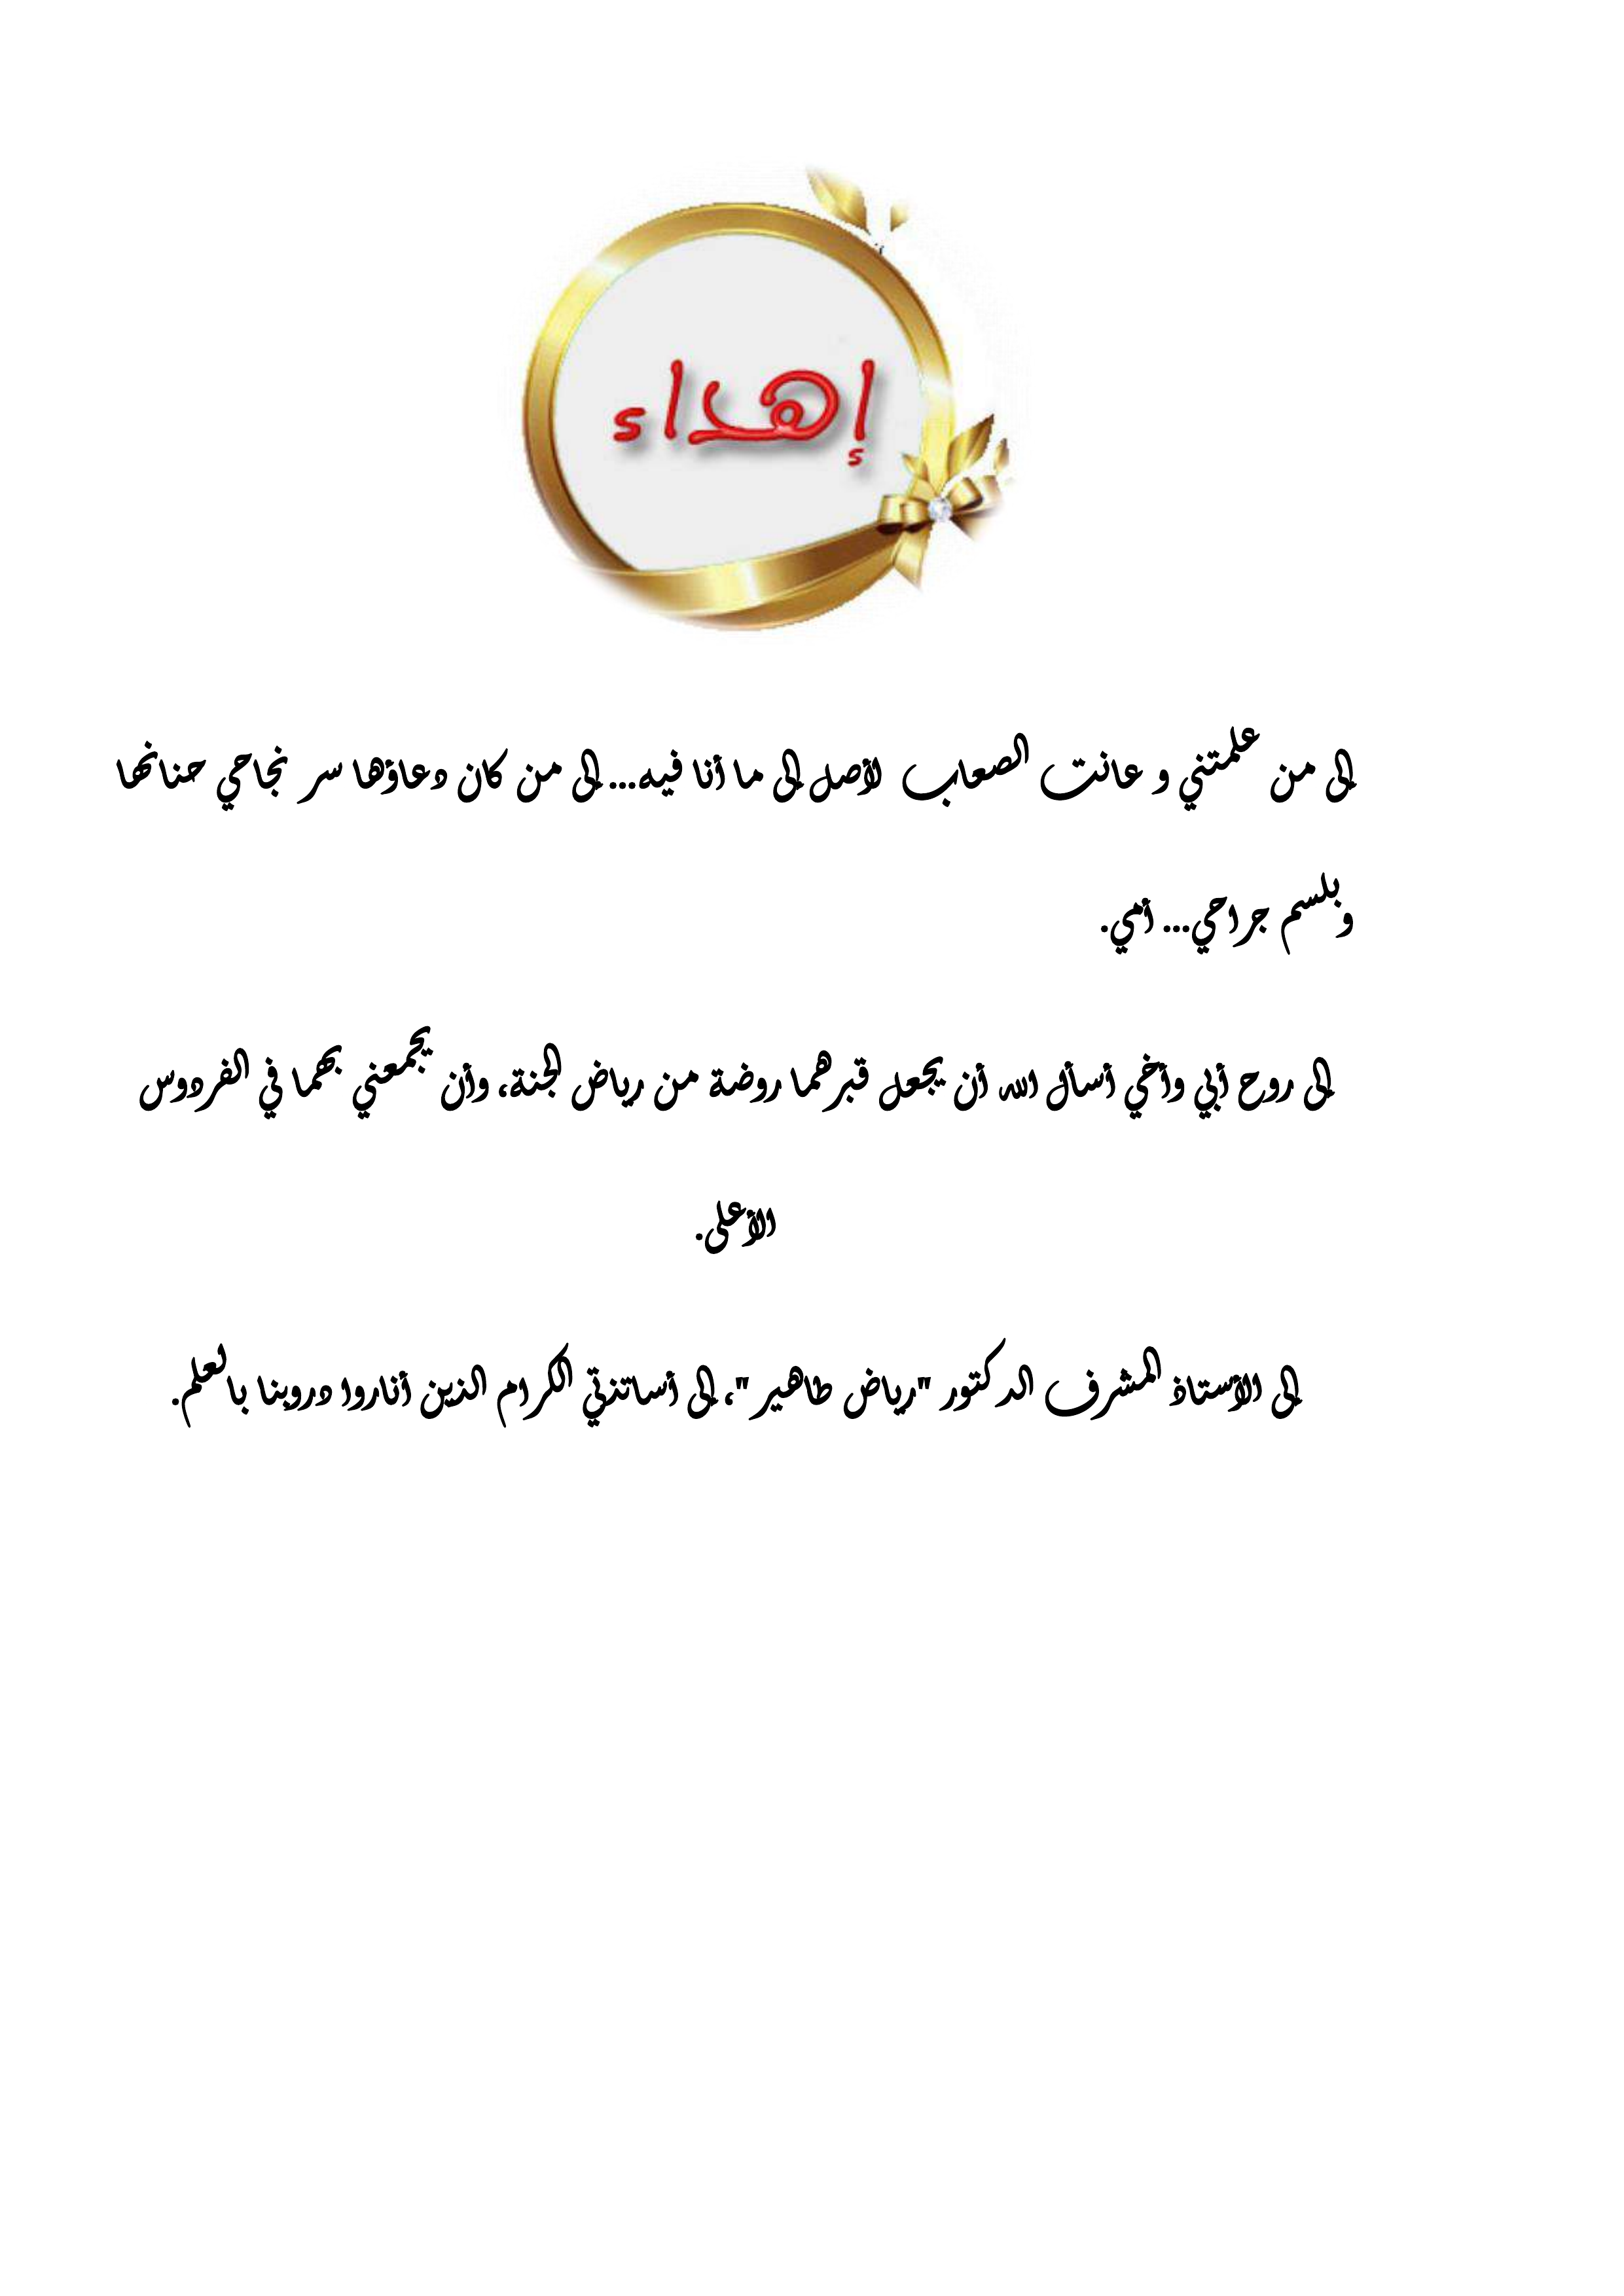 إهداء
إلى من علمتني و عانت الصعاب لأصل إلى ما أنا فيه... إلى من كان دعاؤها سر نجاحي حنانها
وبلسم جراحي... أمي.
إلى روح أبي وأخي أسأل الله أن يجعل قبرهما روضة من رياض الجنة، وأن يجمعني بهما في الفردوس
الأعلى.
إلى الأستاذ المشرف الدكتور "رياض طاهير "، إلى أساتذتي الكرام الذين أناروا دروبنا بالعلم.